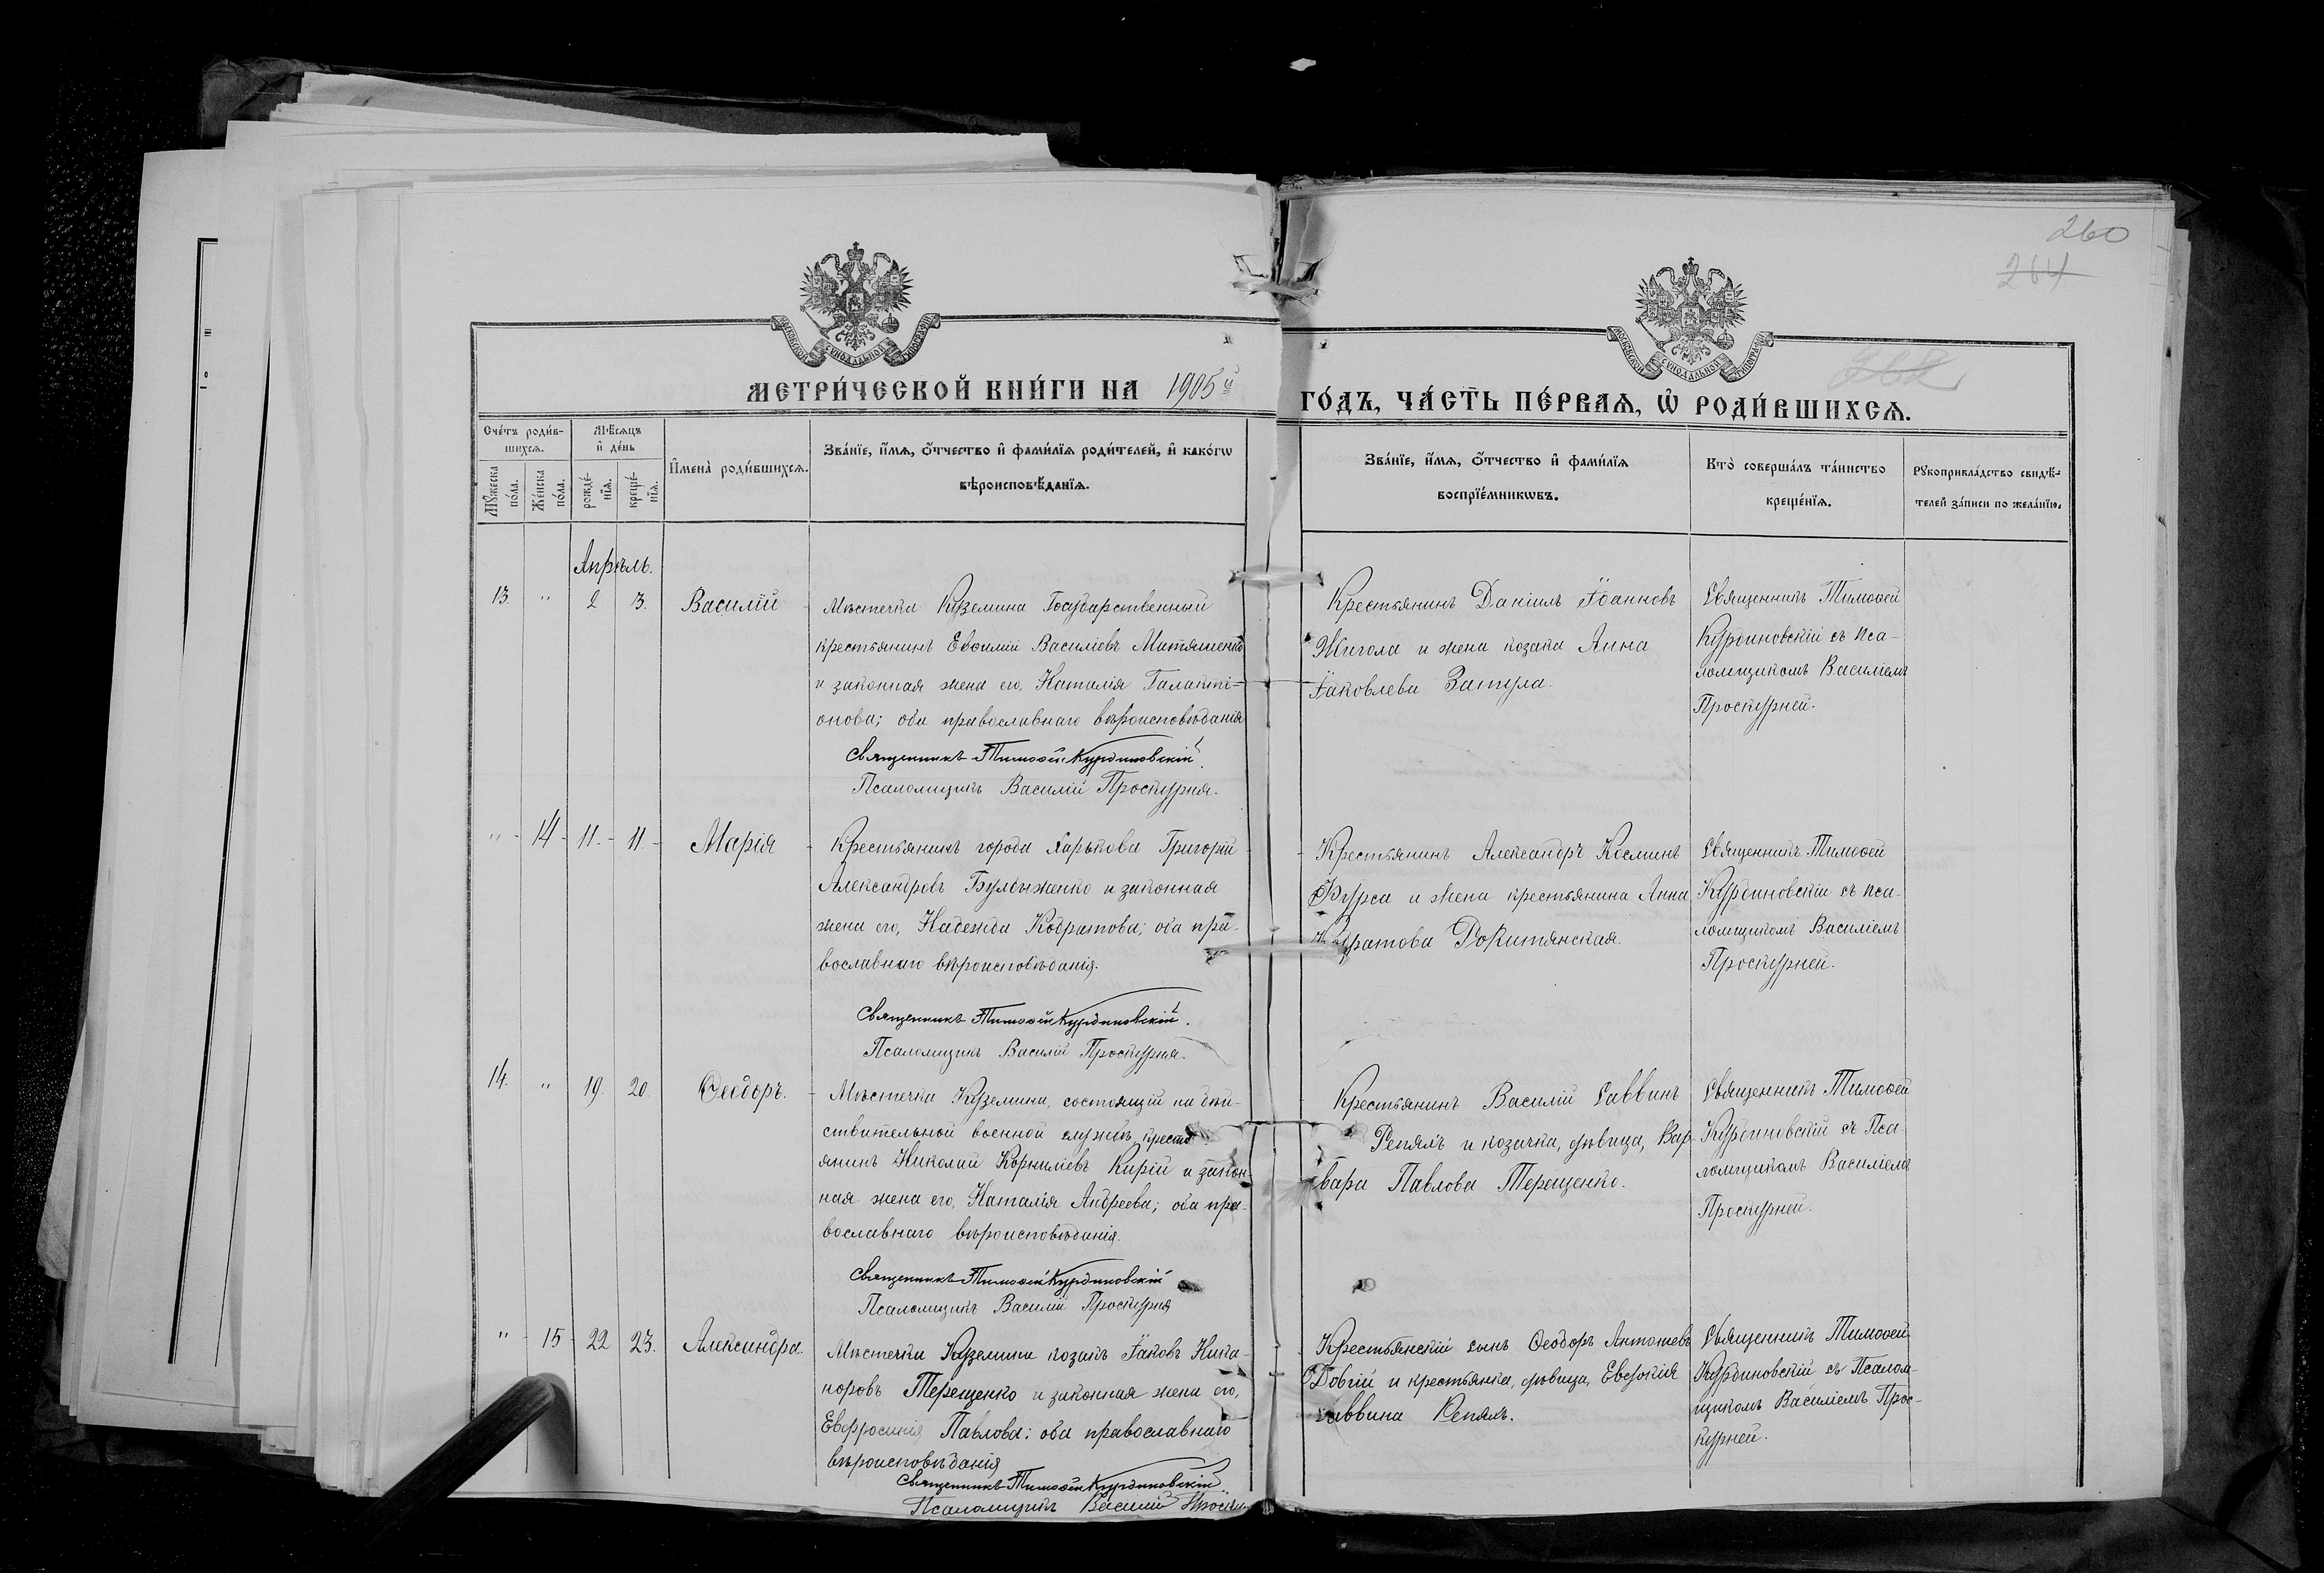 260
264
262
МОСКОВСКОЙ СѴНОДАЛЬНОЙ ТИПОГРАФІИ
МОСКОВСКОЙ СѴНОДАЛЬНОЙ ТИПОГРАФІИ
МЕТРИ́ЧЕСКОЙ КНИ́ГИ НА 1905й
ГО́ДЪ, ЧА́СТЬ ПЕ́РВАЯ, Ѡ РОДИ́ВШИХСЯ.
Сче́тъ роди́в-
шихся.
Мѣ́сяцъ
и де́нь
Му́жеска
по́ла.
Же́нска
по́ла.
рожде́-
нія.
креще́-
нія.
Имена̀ роди́вшихся.
Зва́ніе, и́мя, о́тчество и фами́лія роди́телей, и како́гѡ
вѣроисповѣ́данія.
Зва́ніе, и́мя, о́тчество и фами́лія
воспріе́мникѡвъ.
Кто̀ соверша́лъ та́инство
креще́нія.
Рукоприкла́дство свидѣ́-
телей за́писи по жела́нію.
Апрѣль.
13. " 2 3. Василій
Мѣстечка Куземина Государственный
крестьянинъ Евѳимій Василіевъ Матяшенко
и законная жена его, Наталія Галакті-
онова; оба православнаго вѣроисповѣданія
Священникъ Тимоѳей Курдиновскій.
Псаломщикъ Василій Проскурня.
Крестьянинъ Даніилъ Іоанновъ
Жигола и жена козака Анна
Іаковлева Затула.
Священникъ Тимоѳей
Курдиновскій съ пса-
ломщикомъ Василіемъ
Проскурней.
" - 14 - 11. - 11. - Марія
Крестьянинъ города Харькова Григорій
Александровъ Булыженко и законная
жена его, Надежда Кодратова; оба пра-
вославнаго вѣроисповѣданія.
Священникъ Тимоѳей Курдиновскій.
Псаломщикъ Василій Проскурня.
Крестьянинъ Александръ Косминъ
Фурса и жена крестьянина Анна
Кодратова Рокитянская.
Священникъ Тимоѳей
Курдиновскій съ пса-
ломщикомъ Василіемъ
Проскурней.
14. " 19. 20. Ѳеодоръ.
Мѣстечка Куземина, состоящій на дѣй-
ствительной военной службѣ, кресть-
янинъ Николай Корниліевъ Кирій и закон-
ная жена его, Наталія Андреева; оба пра-
вославнаго вѣроисповѣданія.
Священникъ Тимоѳей Курдиновскій
Псаломщикъ Василій Проскурня
Крестьянинъ Василій Саввинъ
Репяхъ и козачка, дѣвица, Вар-
вара Павлова Терещенко.
Священникъ Тимоѳей
Курдиновскій съ Пса-
ломщикомъ Василіемъ
Проскурней.
" 15 22 23. Александра.
Мѣстечка Куземина козакъ Іаковъ Ника-
норовъ Терещенко и законная жена его,
Евфросинія Павлова; оба православнаго
вѣроисповѣданія
Священникъ Тимоѳей Курдиновскій.
Псаломщикъ Василій
Крестьянскій сынъ Ѳеодоръ Антоніевъ
Довгій и крестьянка, дѣвица, Евдокія
Саввина Репяхъ.
Священникъ Тимоѳей
Курдиновскій съ Псалом-
щикомъ Василіемъ Прос-
курней.